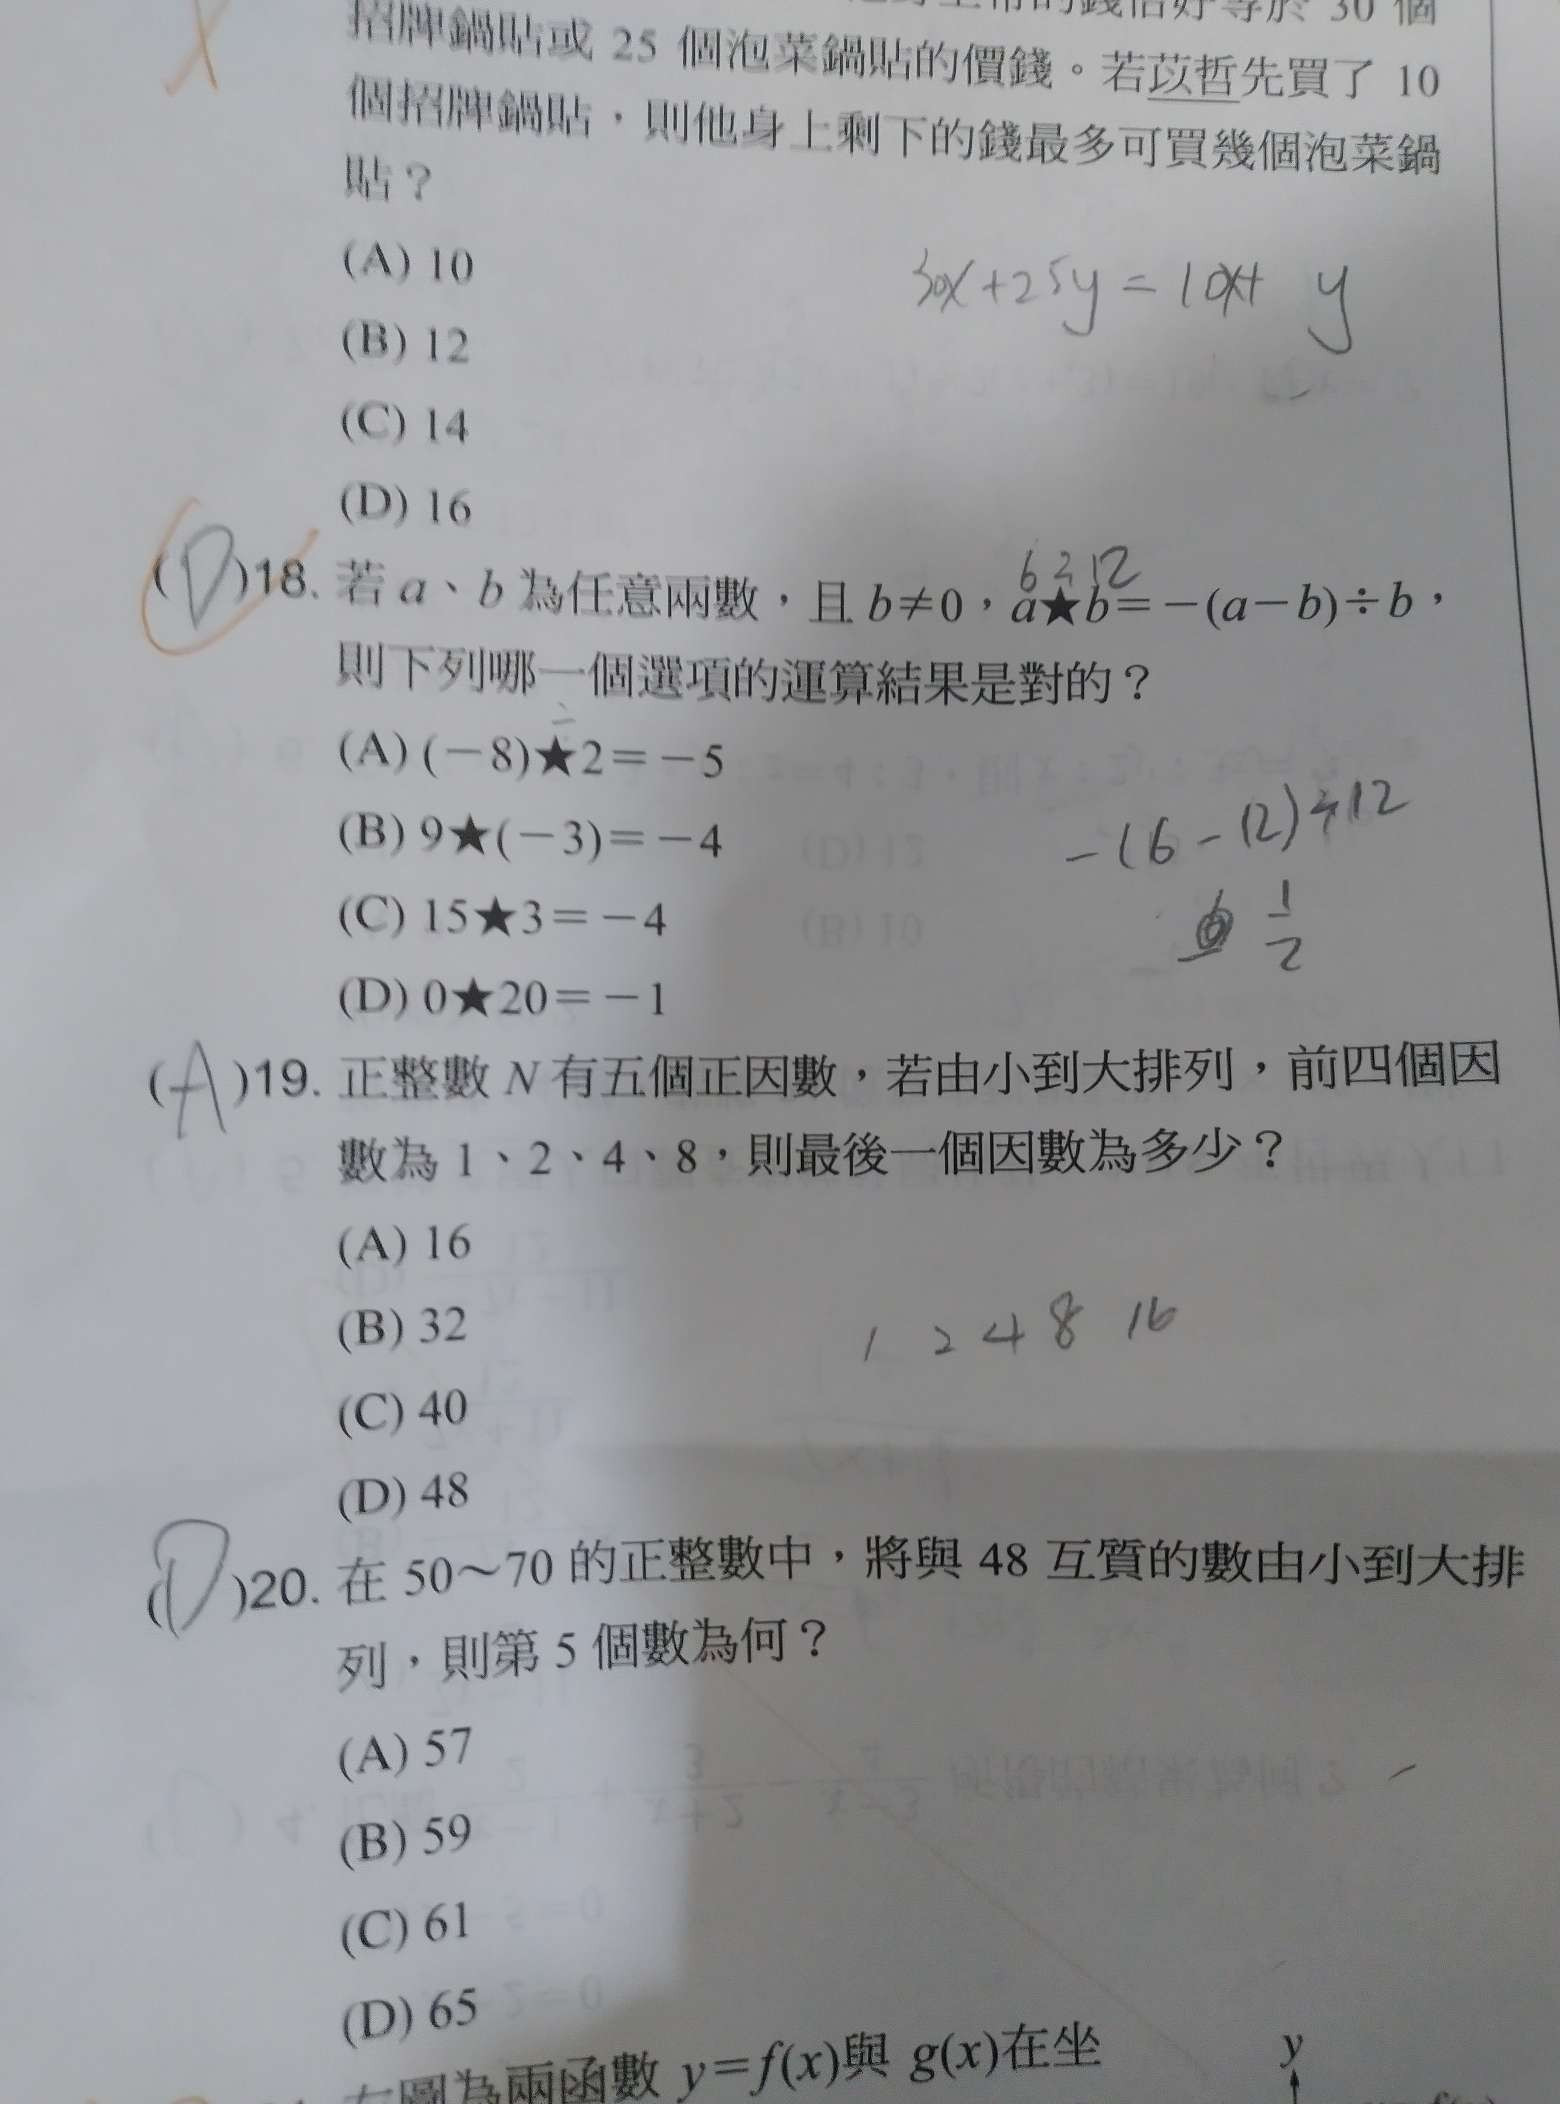 的錢恰好等於 30 個
招牌鍋貼或 25 個泡菜鍋貼的價錢。若苡哲先買了 10
個招牌鍋貼，則他身上剩下的錢最多可買幾個泡菜鍋
貼？
(A) 10
30x+25y=10x+ y
(B) 12
(C) 14
(D) 16
6÷12
(D)18. 若 a、b 為任意兩數，且 b≠0，a★b=－(a－b)÷b，
則下列哪一個選項的運算結果是對的？
(A) (－8)★2=－5
(B) 9★(－3)=－4
-(6-12)÷12
(C) 15★3=－4
1/2
(D) 0★20=－1
(A)19. 正整數 N 有五個正因數，若由小到大排列，前四個因
數為 1、2、4、8，則最後一個因數為多少？
(A) 16
(B) 32
1 2 4 8 16
(C) 40
(D) 48
(D)20. 在 50～70 的正整數中，將與 48 互質的數由小到大排
列，則第 5 個數為何？
(A) 57
(B) 59
(C) 61
(D) 65
圖為兩函數 y=f(x)與 g(x)在坐
y